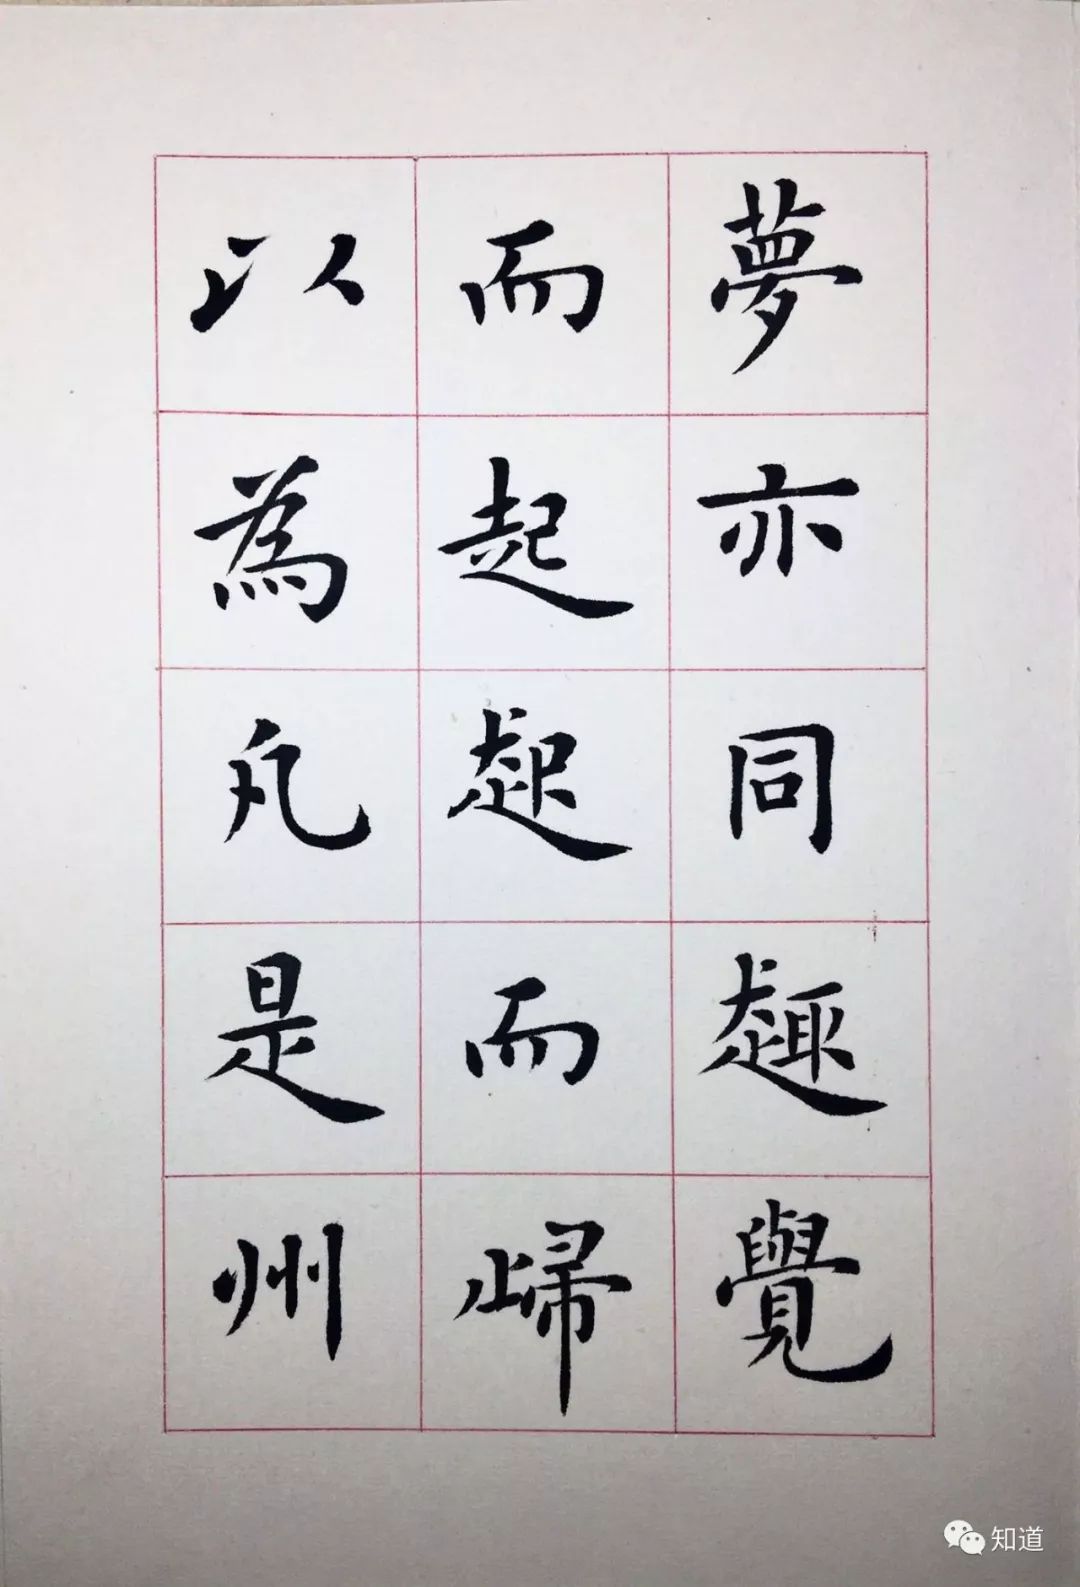 夢亦同趣覺
而起起而歸
以為凡是州
知道